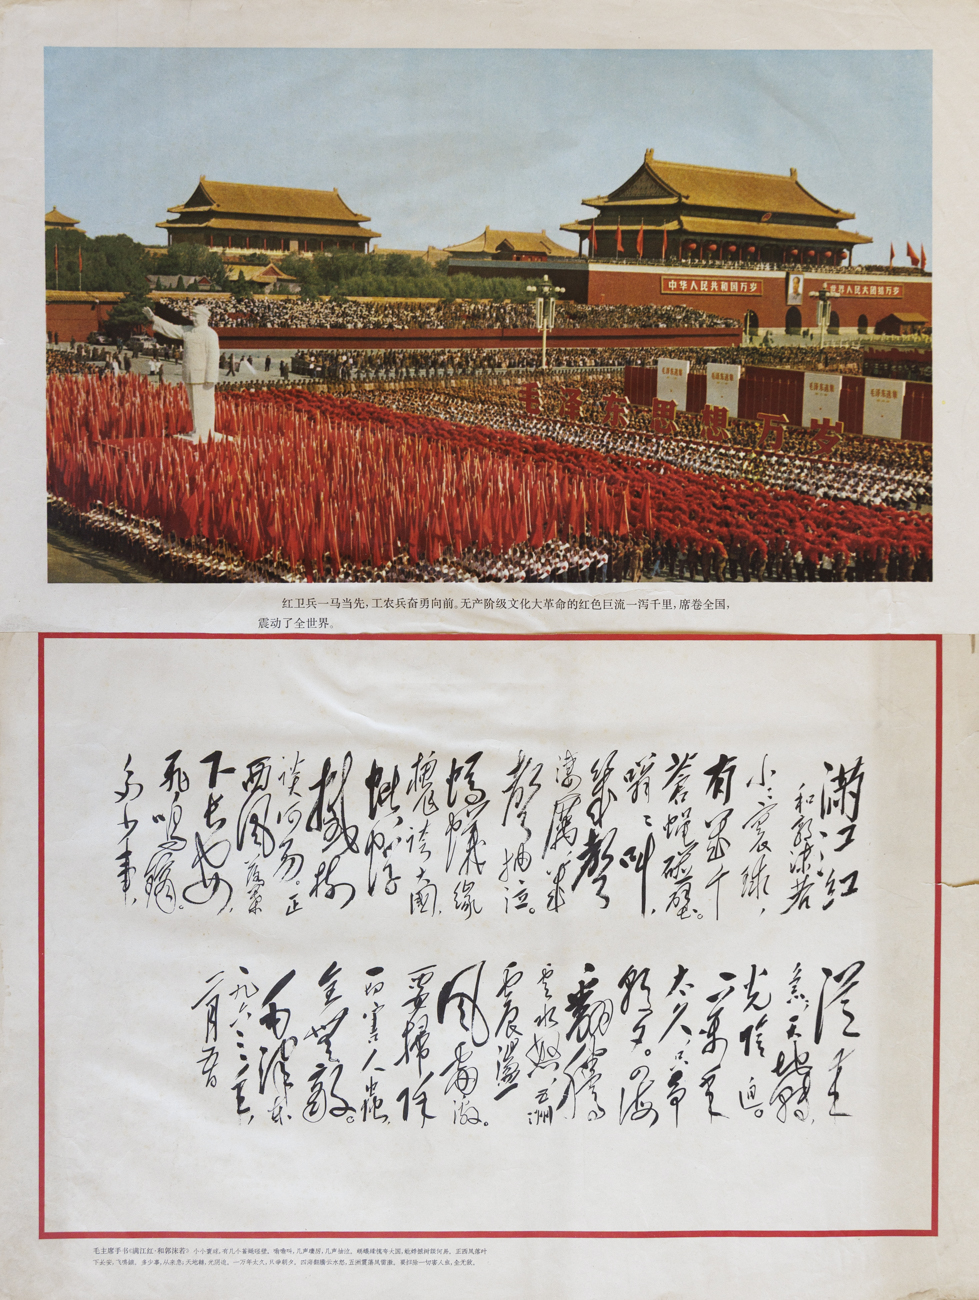 中华人民共和国万岁
世界人民大团结万岁
毛泽东选集
毛泽东选集
毛泽东选集
毛泽东选集
毛泽东思想万岁
红卫兵一马当先，工农兵奋勇向前。无产阶级文化大革命的红色巨流一泻千里，席卷全国，
震动了全世界。
满江红
和郭沫若
小小寰球，
有几个
苍蝇碰壁。
嗡嗡叫，
几声
凄厉，几
声抽泣。
蚂蟻缘
槐誇大國，
蚍蜉
撼树
谈何易。正
西风落葉
下长安，
飛鸣镝。
多少事，
从来
急；天地轉，
光陰迫。
一萬年
太久，只争
朝夕。四海
翻騰
雲水怒，五洲
震盪
风雷激。
要掃除
一切害人虫，
全無敵。
毛泽东
一九六三年
二月五日
毛主席手书《满江红·和郭沫若》 小小寰球，有几个苍蝇碰壁。嗡嗡叫，几声凄厉，几声抽泣。蚂蚁缘槐夸大国，蚍蜉撼树谈何易。正西风落叶
下长安，飞鸣镝。 多少事，从来急；天地转，光阴迫。一万年太久，只争朝夕。四海翻腾云水怒，五洲震荡风雷激。要扫除一切害人虫，全无敌。